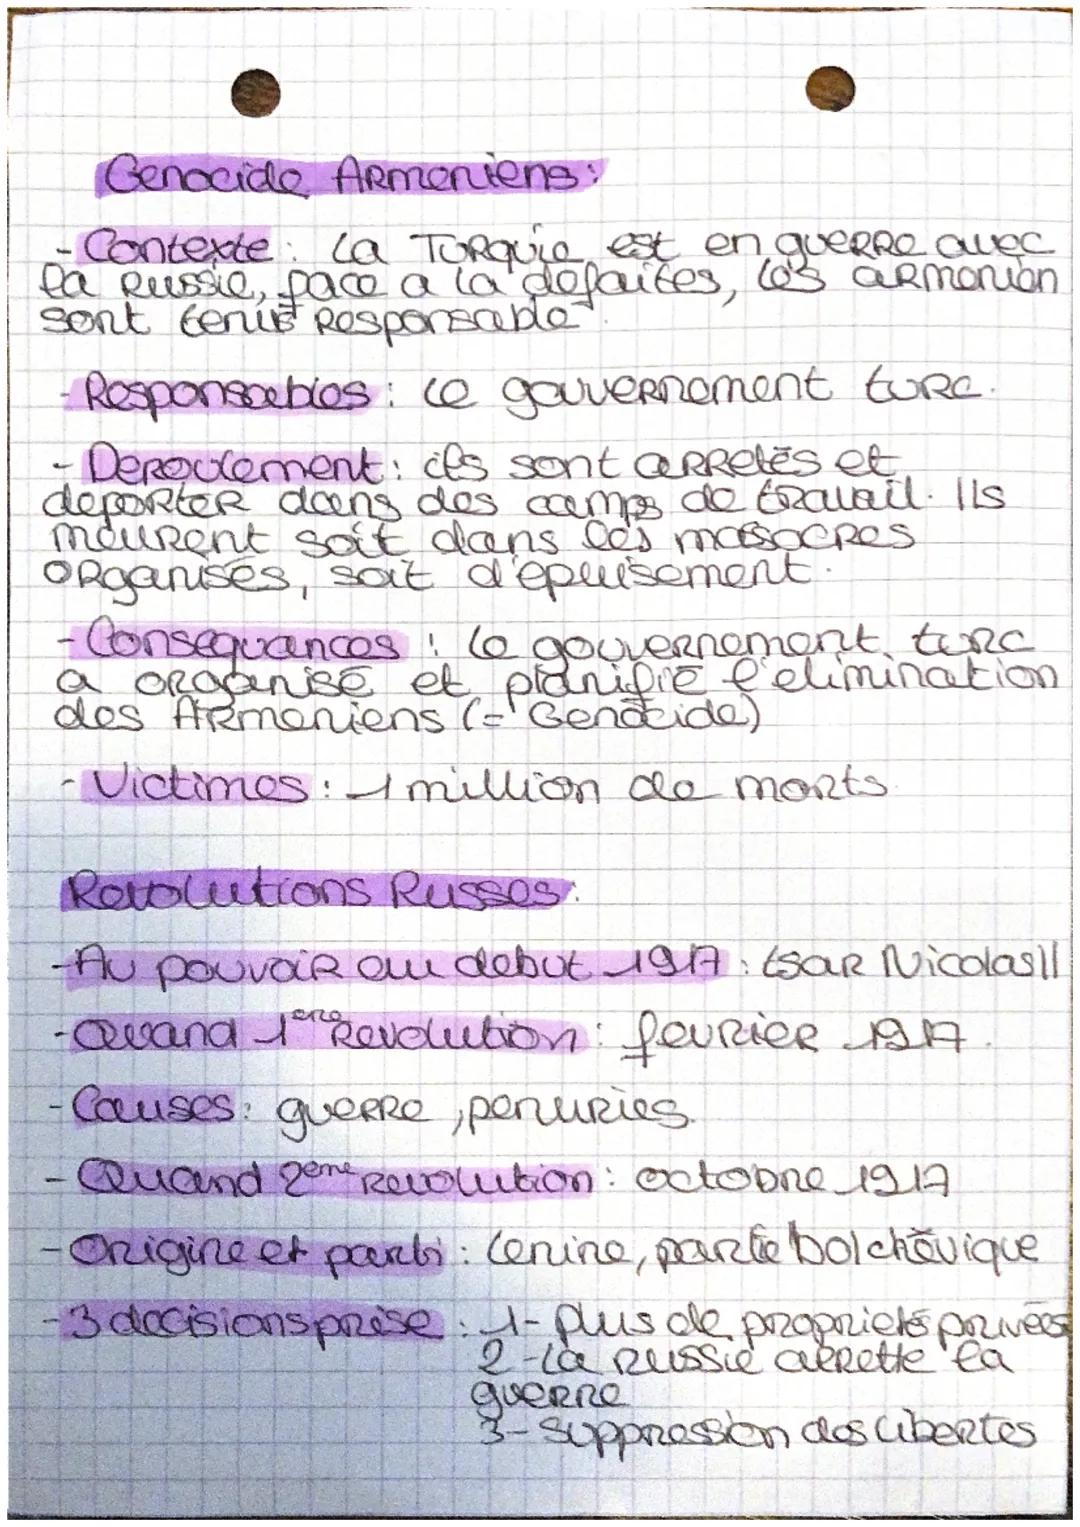 Genocide Armeniens :
- Contexte : La Turquie est en guerre avec
la Russie, face a la defaites, les armenien
sont tenus responsable.
- Responsables : le gouvernement turc.
- Deroulement : ils sont arretés et
deporter dans des camps de travail. Ils
meurent soit dans les massacres
organisés, soit d'epuisement.
- Consequances : le gouvernement turc
a organisé et planifié l'elimination
des Armeniens (= Genocide)
- Victimes : 1 million de morts.
Revolutions Russes :
- Au pouvoir au debut 1917 : tsar Nicolas II
- Quand 1ere Revolution : fevrier 1917.
- Causes : guerre, penuries.
- Quand 2eme revolution : octobre 1917
- Origine et parti : Lenine, partie bolchévique
- 3 decisions prise : 1- plus de propriétés privées
2 - La Russie arrette la
guerre
3- suppression des libertes